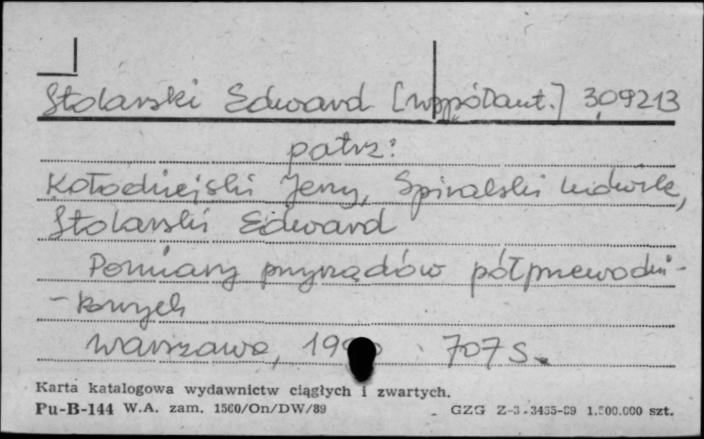 Stolarski Edward [współaut.] 309213
patrz:
Kołodziejski Jerzy, Spiralski Ludwik,
Stolarski Edward
Pomiary przyrządów półprzewodni-
-kowych
Warszawa, 707 s.
Karta katalogowa wydawnictw ciągłych i zwartych.
Pu-B-144 W.A. zam. 1500/On/DW/89 GZG Z-3 1.500.000 szt.